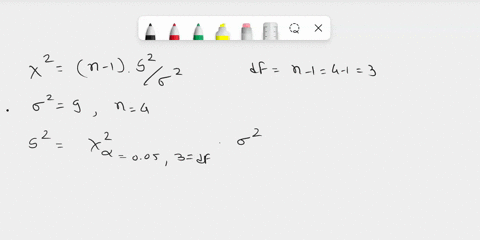 χ² = (n-1) . S²/σ²
df = n-1 = 4-1 = 3
. σ² = 9 , n = 4
S² = χ²α = 0.05, 3 = df . σ²